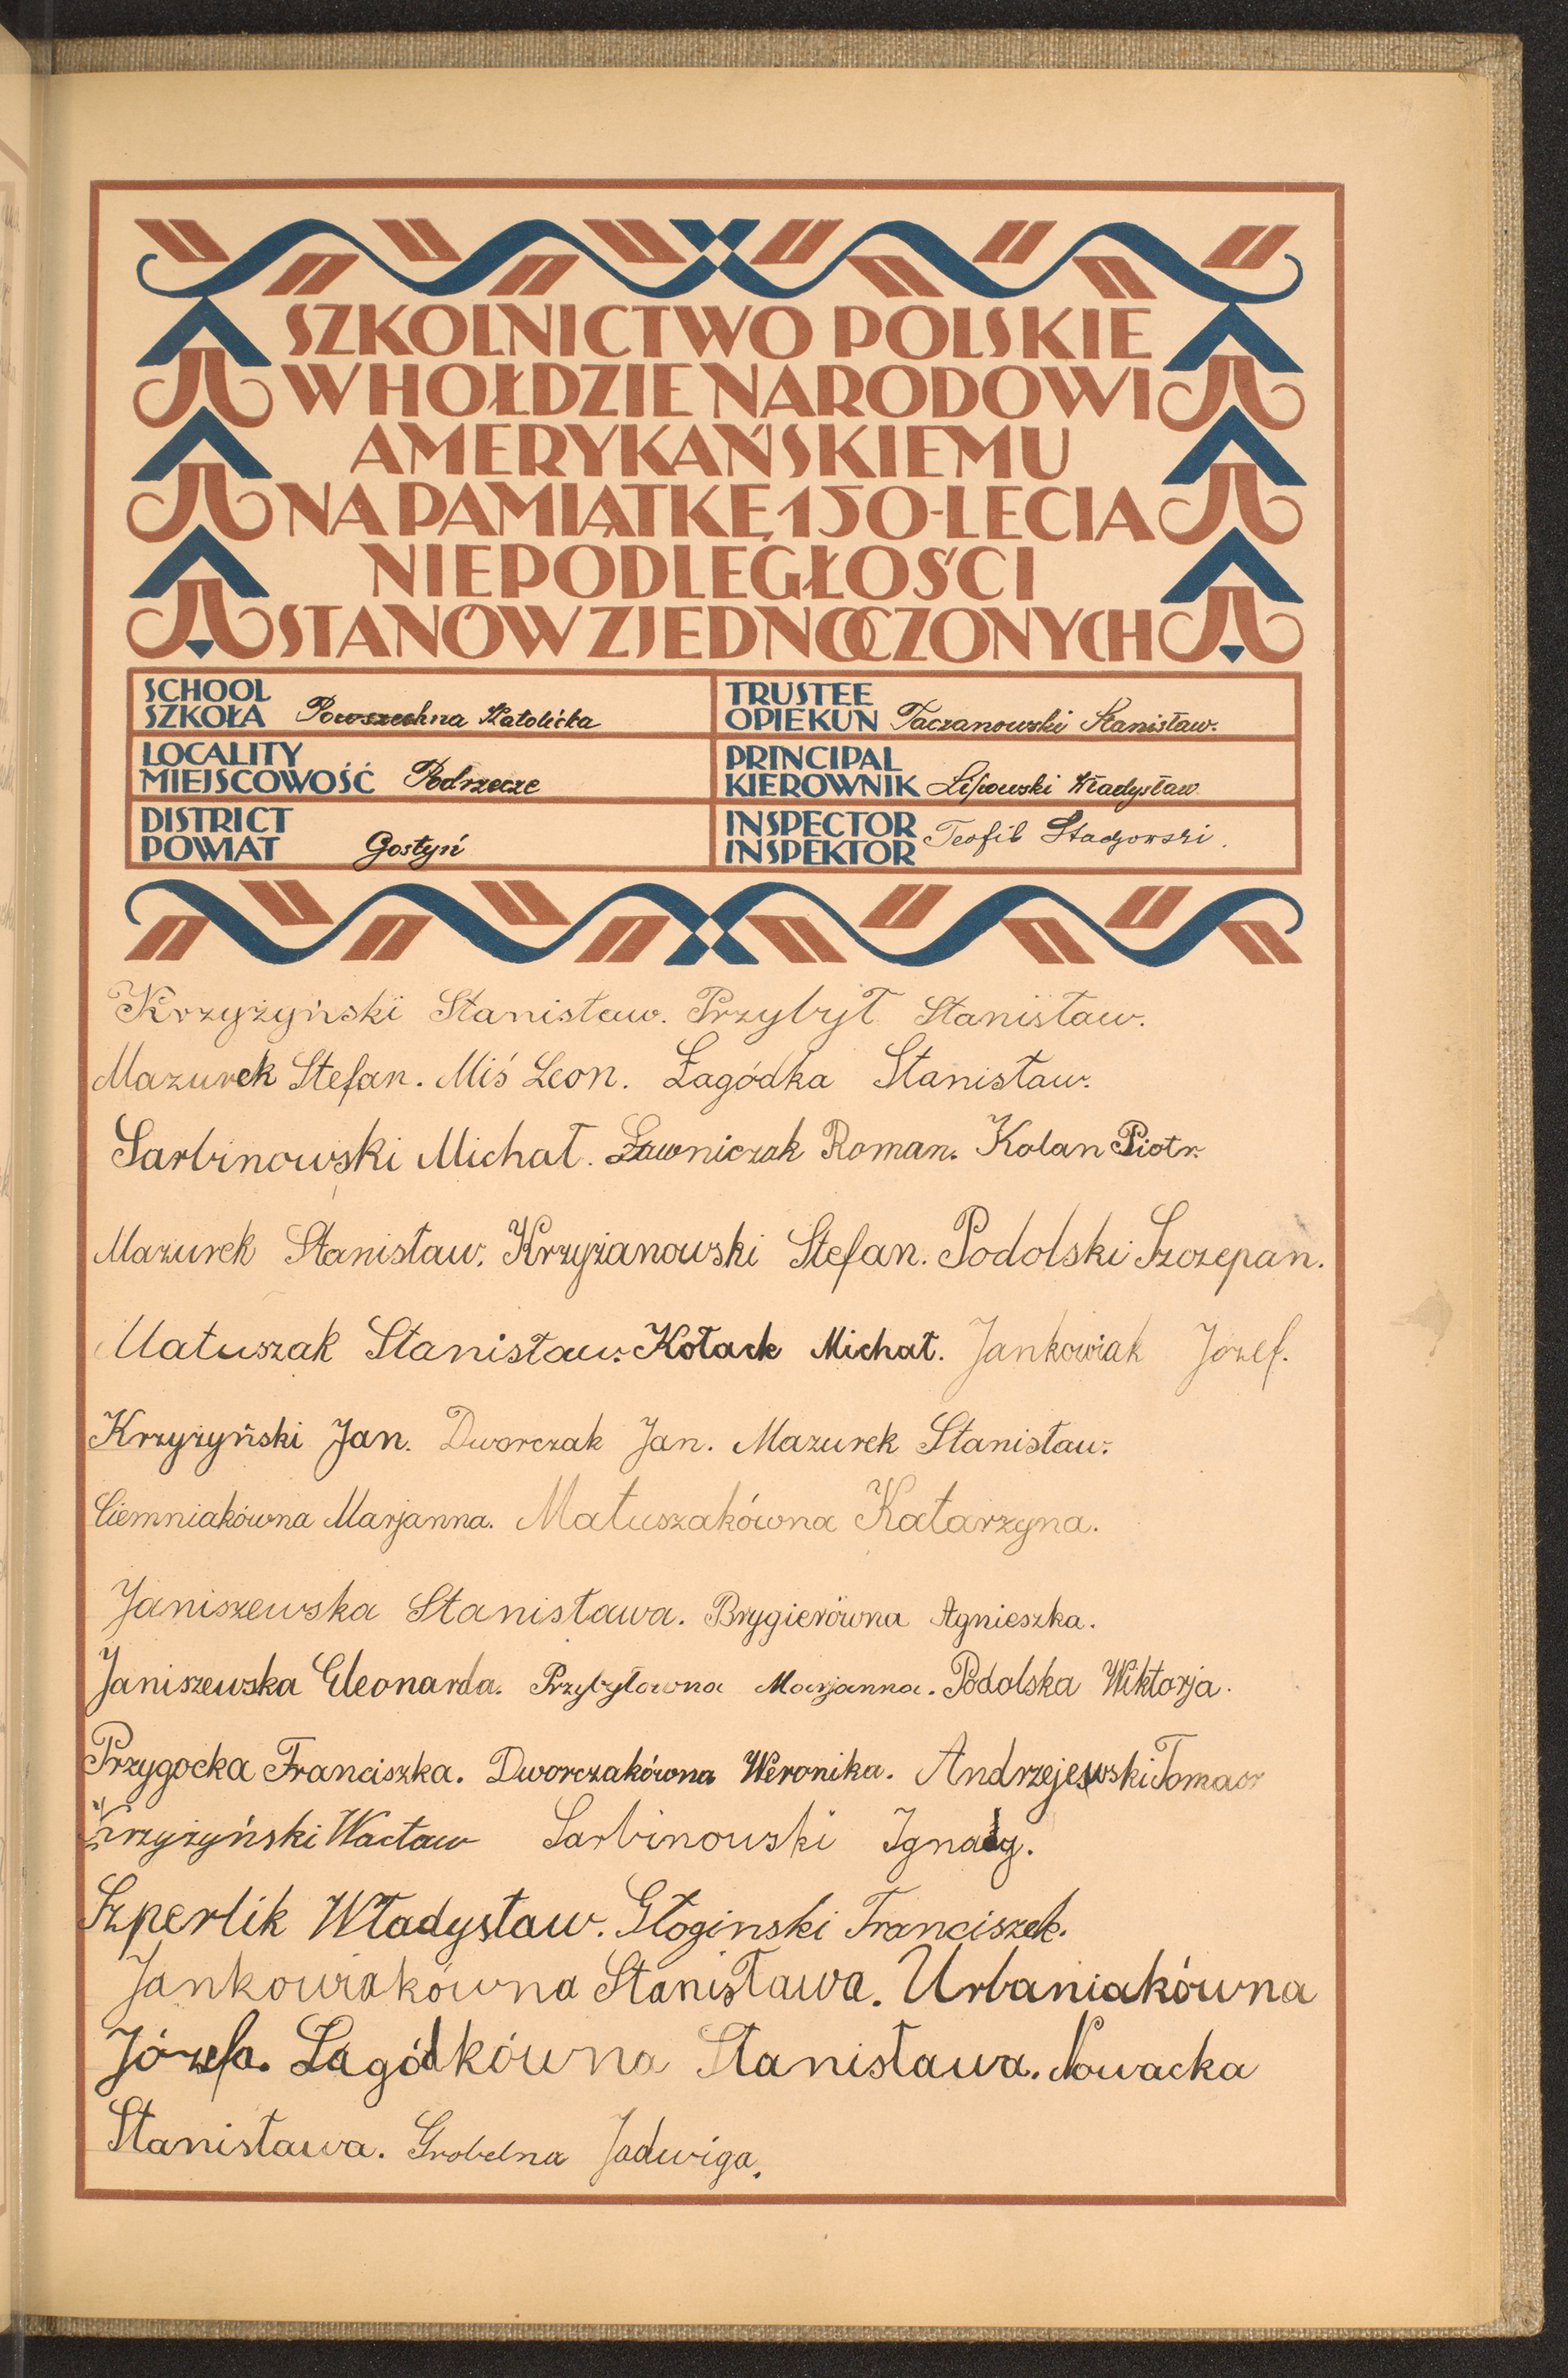 SZKOLNICTWO POLSKIE
W HOŁDZIE NARODOWI
AMERYKAŃSKIEMU
NA PAMIĄTKĘ 150-LECIA
NIEPODLEGŁOŚCI
STANÓW ZJEDNOCZONYCH
SCHOOL
SZKOŁA Powszechna Katolicka
TRUSTEE
OPIEKUN Taczanowski Stanisław.
LOCALITY
MIEJSCOWOŚĆ Podrzecze
PRINCIPAL
KIEROWNIK Lisowski Władysław
DISTRICT
POWIAT Gostyń
INSPECTOR
INSPEKTOR Teofil
Krzyżyński Stanisław. Przybył Stanisław.
Mazurek Stefan. Miś Leon. Łagódka Stanisław.
Sarbinowski Michał. Ławniczak Roman. Kolan Piotr.
Mazurek Stanisław. Krzyżanowski Stefan. Podolski Szczepan.
Matuszak Stanisław. Kołack Michał. Jankowiak Józef.
Krzyżyński Jan. Dworczak Jan. Mazurek Stanisław.
Ciemniakówna Marjanna. Matuszakówna Katarzyna.
Janiszewska Stanisława. Brygierówna Agnieszka.
Janiszewska Eleonarda. Przybyłowna Marjanna. Podolska Wiktorja.
Przygocka Franciszka. Dworczakówna Weronika. Andrzejewski Tomasz
Krzyżyński Wacław Sarbinowski Ignacy.
Szperlik Władysław. Głoginski Franciszek.
Jankowiakówna Stanisława. Urbaniakówna
Józefa. Łagódkówna Stanisława. Nowacka
Stanisława. Grobelna Jadwiga.